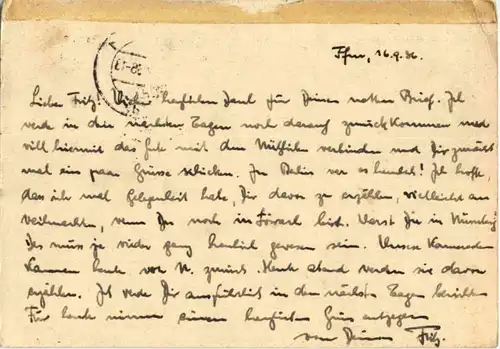 Ffm, 16.9.36.
Lieber Fritz! Vielen herzlichen Dank für Deinen netten Brief. Ich
werde in den nächsten Tagen noch darauf zurückkommen und
will hiermit das Gute mit dem Nützlichen verbinden und Dir zunächst
mal ein paar Grüsse schicken. In Berlin war es herrlich! Ich hoffe,
dass ich mal Gelegenheit habe, Dir davon zu erzählen, vielleicht an
Weihnachten, wenn Du noch in Lörrach bist. Warst Du in Nürnberg?
Das muss ja wieder ganz herrlich gewesen sein. Unsere Kameraden
kamen heute von N. zurück. Heute abend werden sie davon
erzählen. Ich werde Dir ausführlich in den nächsten Tagen berichten
Für heute nimm einen herzlichen Gruss entgegen
von Deinem Fritz.